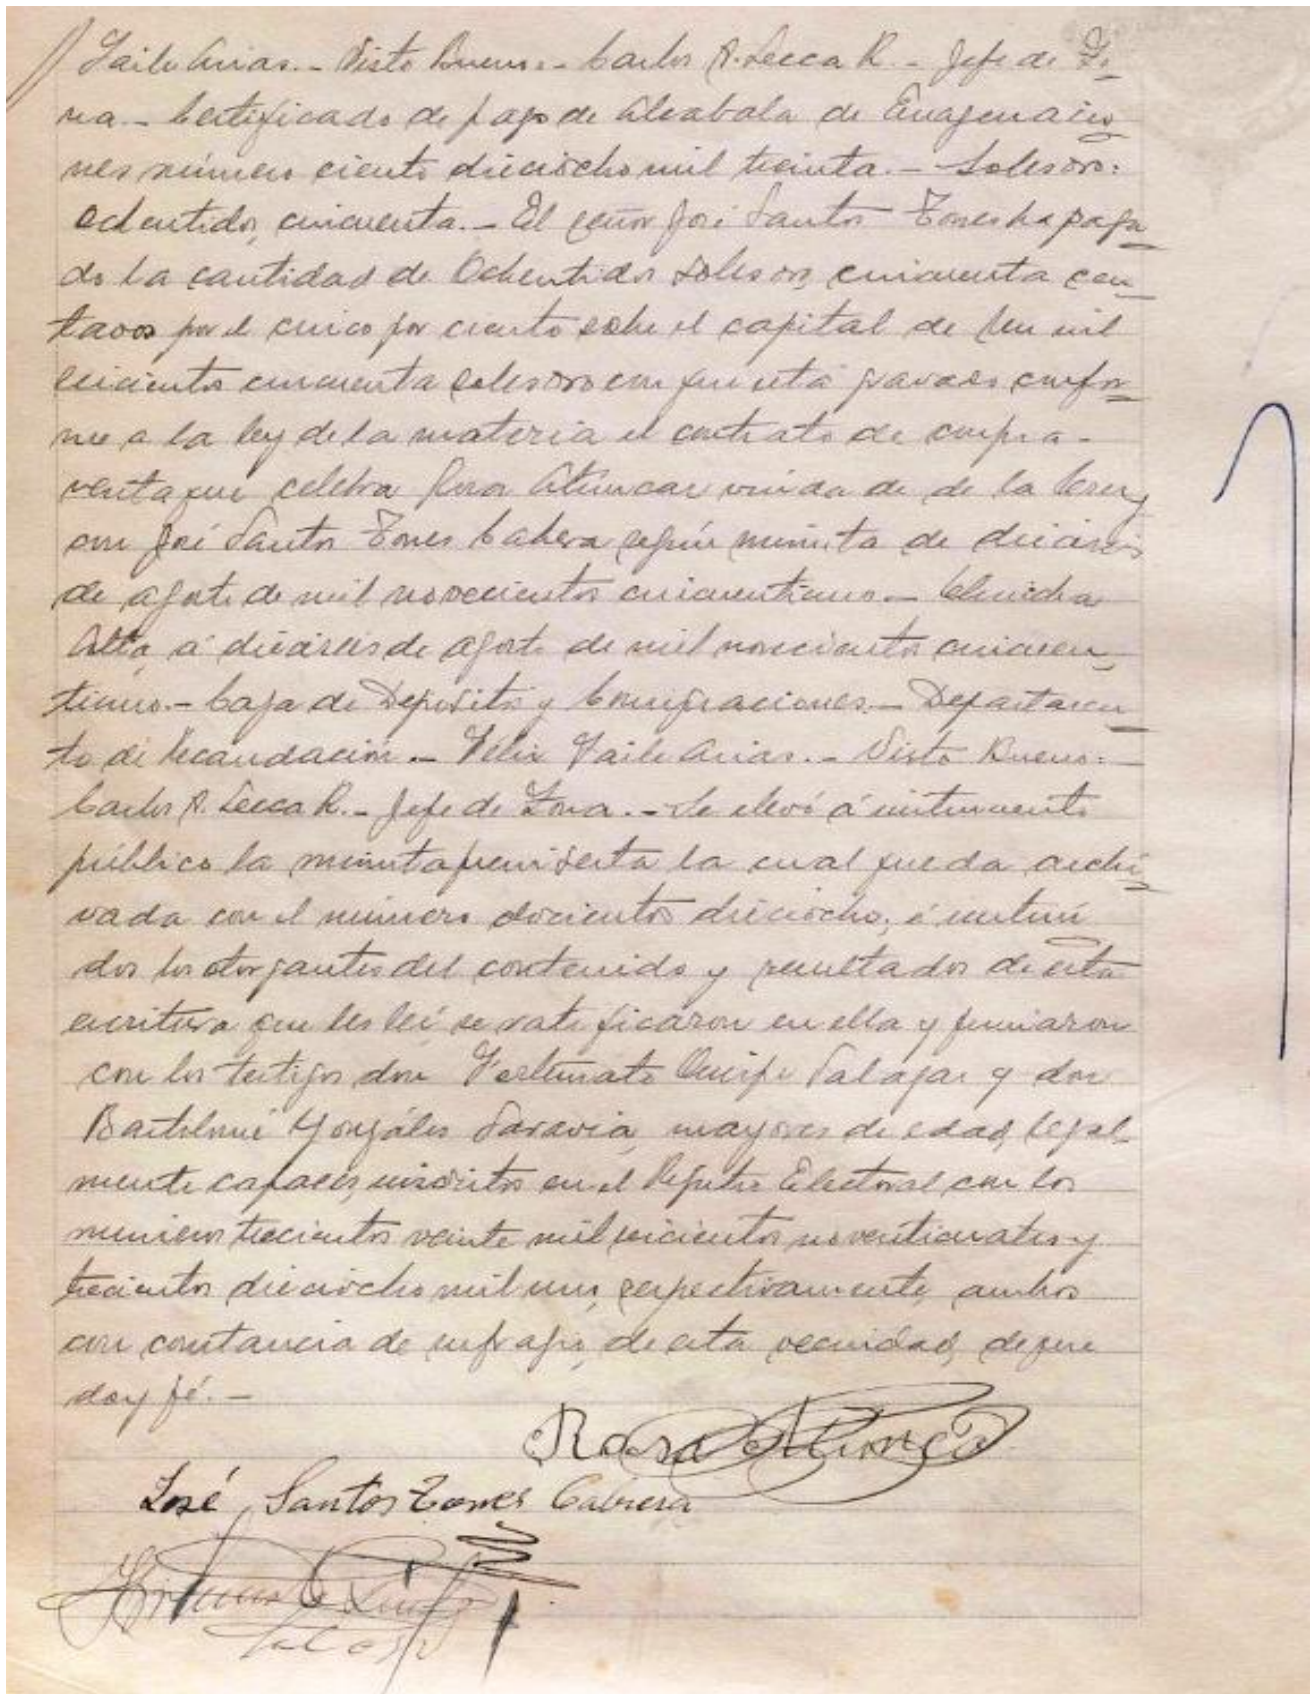 Faile Arias.- Visto Bueno:- Carlos R. Lecca R.- Jefe de Zo-
na.- Certificado de pago de Alcabala de Enagenacio-
nes número ciento dieciocho mil treinta.- Soles oro:
ochentidos, cincuenta.- El señor José Santos Torres ha paga-
do la cantidad de Ochentidos soles oro, cincuenta cen-
tavos por el cinco por ciento sobre el capital de Un mil
seicientos cincuenta soles oro con que está gravado confor-
me a la ley de la materia el contrato de compra-
venta que celebra Rosa Atuncar viuda de de la Cruz
con José Santos Torres Cabrera según minuta de dieciseis
de agosto de mil novecientos cincuentiuno.- Chincha
Alta, á dieciseis de agosto de mil novecientos cincuen-
tiuno.- Caja de Depósitos y Consignaciones.- Departamen-
to de Recaudación.- Félix Faile Arias.- Visto Bueno:-
Carlos R. Lecca R.- Jefe de Zona.- Se elevó á instrumento
público la minuta preinserta la cual queda archi-
vada con el número docientos dieciocho, é instruí
dos los otorgantes del contenido y resultados de esta
escritura que les leí se ratificaron en ella y firmaron
con los testigos don Fortunato Quispe Salazar y don
Bartolomé Gonzáles Saravia, mayores de edad, legal-
mente capaces, inscritos en el Registro Electoral con los
números trecientos veinte mil seicientos noventicuatro y
trecientos dieciocho mil uno, respectivamente, ambos
con constancia de sufragio, de esta vecindad, de que
doy fé.-
Rosa Atunca
José Santos Torres Cabrera